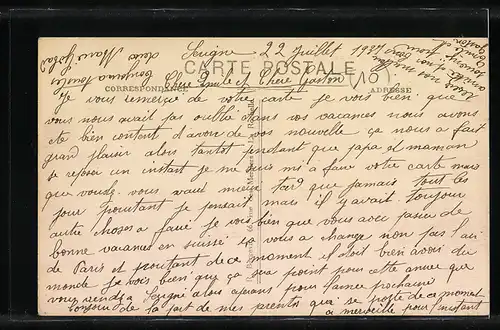 Serigne 22 Juillet 1937
CARTE POSTALE
CORRESPONDANCE
ADRESSE
Cher Emile et Chere Gaston
Je vous remercie de votre carte je vois bien que
vous nous avait pas oublié dans vos vacances nous avons
ete bien content d'avoir de vos nouvelle ça nous a fait
grand plaisir alors tantot pendant que papa et maman
se repose un instant je me suis mi a faire votre carte mais
que voulez vous vaut mieux tard que jamais tout les
jour pourtant je pensait mais il y avait toujour
autre choses a faire je vois bien que vous avez passer de
bonne vacances en suisse ça vous a changé non pas l'air
de Paris et pourtant de ce moment il doit bien avoir du
monde je vois bien que ça sera point pour cette année que
vous viendrez a alors ayerons pour l'année prochaine
bonjour de la part de mes parents qui se porte de ce moment
a merveille pour l'instant